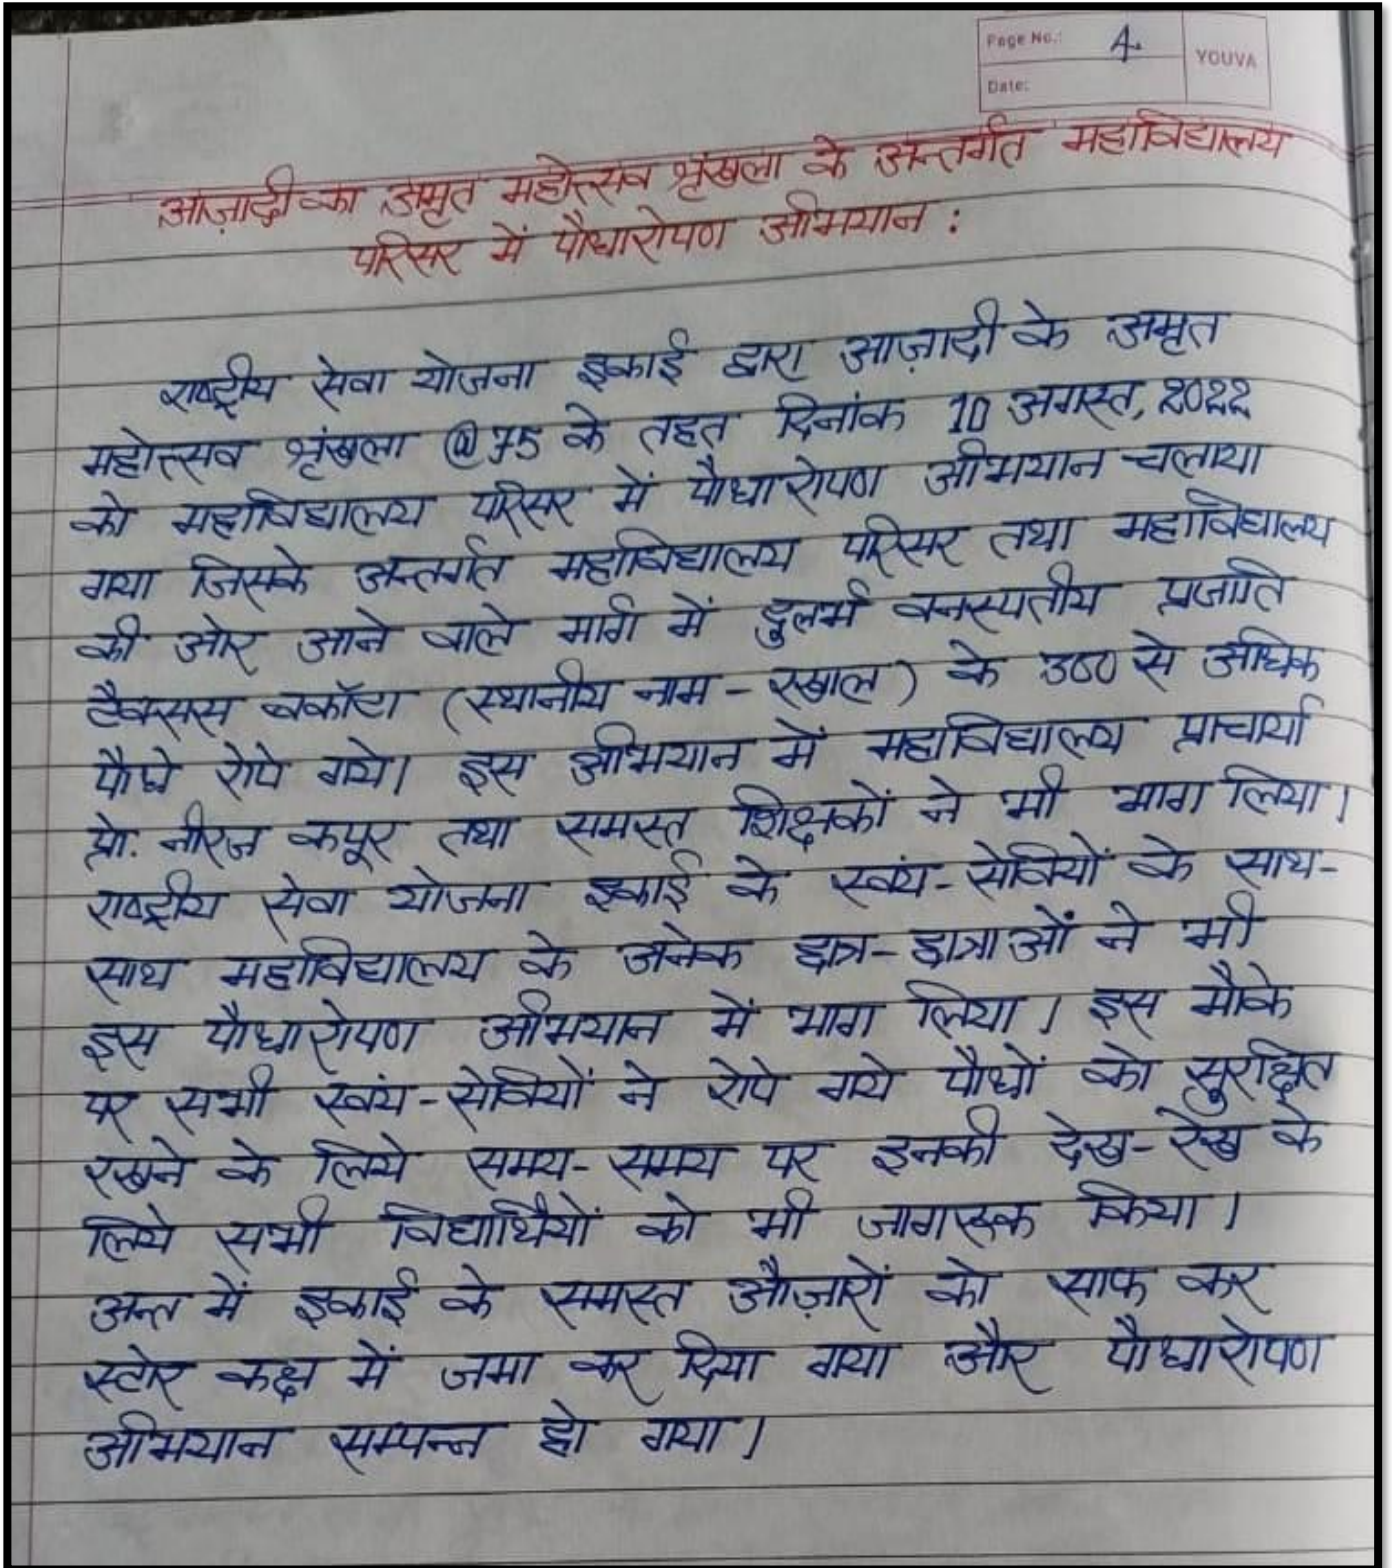 Page No.: 4.
YOUVA
Date:
आज़ादी का अमृत महोत्सव श्रृंखला के अन्तर्गत महाविद्यालय
परिसर में पौधारोपण अभियान :
राष्ट्रीय सेवा योजना इकाई द्वारा आज़ादी के अमृत
महोत्सव श्रृंखला @75 के तहत दिनांक 10 अगस्त, 2022
को महाविद्यालय परिसर में पौधारोपण अभियान चलाया
गया जिसके अन्तर्गत महाविद्यालय परिसर तथा महाविद्यालय
की ओर आने वाले मार्ग में दुलर्भ वनस्पतीय प्रजाति
टैक्सस बकॉटा (स्थानीय नाम - रखाल) के 300 से अधिक
पौधे रोपे गये। इस अभियान में महाविद्यालय प्राचार्या
प्रो. नीरज कपूर तथा समस्त शिक्षकों ने भी भाग लिया।
राष्ट्रीय सेवा योजना इकाई के स्वयं-सेवियों के साथ-
साथ महाविद्यालय के अनेक छात्र-छात्राओं ने भी
इस पौधारोपण अभियान में भाग लिया। इस मौके
पर सभी स्वयं-सेवियों ने रोपे गये पौधों को सुरक्षित
रखने के लिये समय-समय पर इनकी देख-रेख के
लिये सभी विद्यार्थियों को भी जागरूक किया।
अन्त में इकाई के समस्त औज़ारों को साफ कर
स्टोर कक्ष में जमा कर दिया गया और पौधारोपण
अभियान सम्पन्न हो गया।